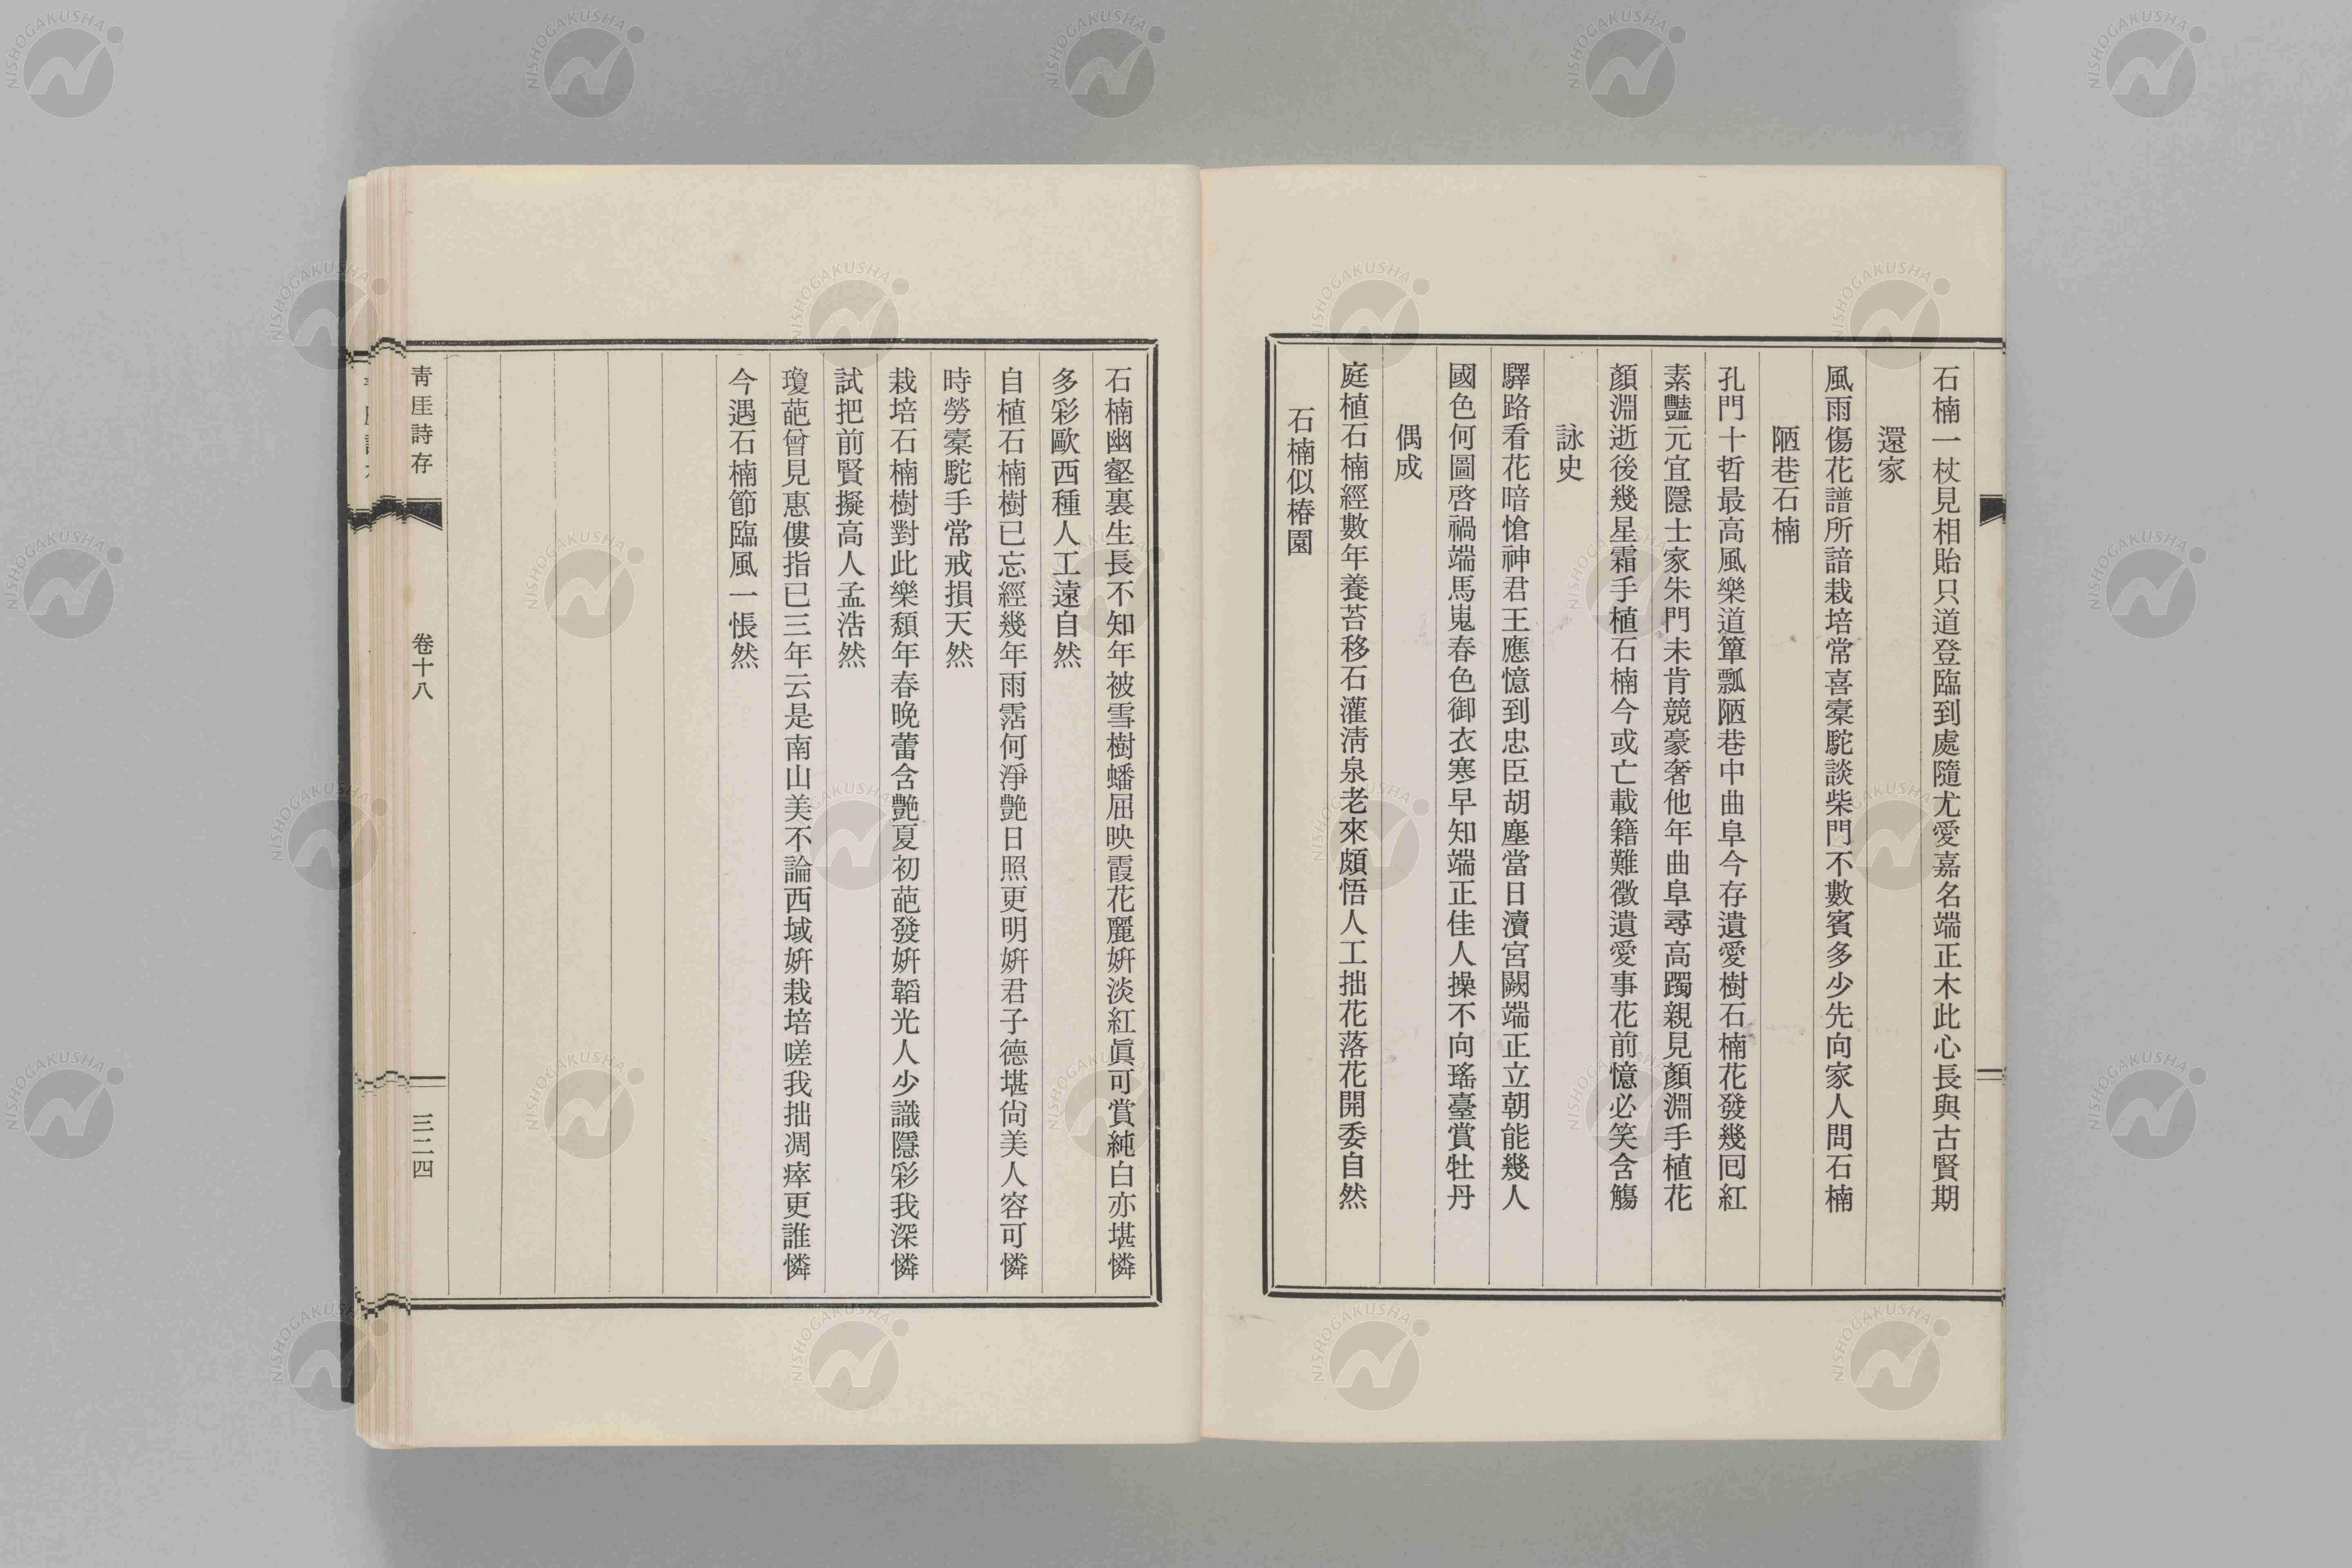 石楠一杖見相貽只道登臨到處隨尤愛嘉名端正木此心長與古賢期
還家
風雨傷花譜所諳栽培常喜槖駝談柴門不數賓多少先向家人問石楠
陋巷石楠
孔門十哲最高風樂道簞瓢陋巷中曲阜今存遺愛樹石楠花發幾囘紅
素豔元宜隱士家朱門未肯競豪奢他年曲阜尋高躅親見顏淵手植花
顏淵逝後幾星霜手植石楠今或亡載籍難徵遺愛事花前憶必笑含觴
詠史
驛路看花暗愴神君王應憶到忠臣胡塵當日瀆宮闕端正立朝能幾人
國色何圖啓禍端馬嵬春色御衣寒早知端正佳人操不向瑤臺賞牡丹
偶成
庭植石楠經數年養苔移石灌淸泉老來頗悟人工拙花落花開委自然
石楠似椿園
石楠幽壑裏生長不知年被雪樹蟠屈映霞花麗姸淡紅眞可賞純白亦堪憐
多彩歐西種人工遠自然
自植石楠樹已忘經幾年雨霑何淨艶日照更明姸君子德堪尙美人容可憐
時勞槖駝手常戒損天然
栽培石楠樹對此樂頽年春晚蕾含艶夏初葩發姸韜光人少識隱彩我深憐
試把前賢擬高人孟浩然
瓊葩曾見惠僂指已三年云是南山美不論西域姸栽培嗟我拙凋瘁更誰憐
今遇石楠節臨風一悵然
靑厓詩存
卷十八
三二四
NISHOGAKUSHA